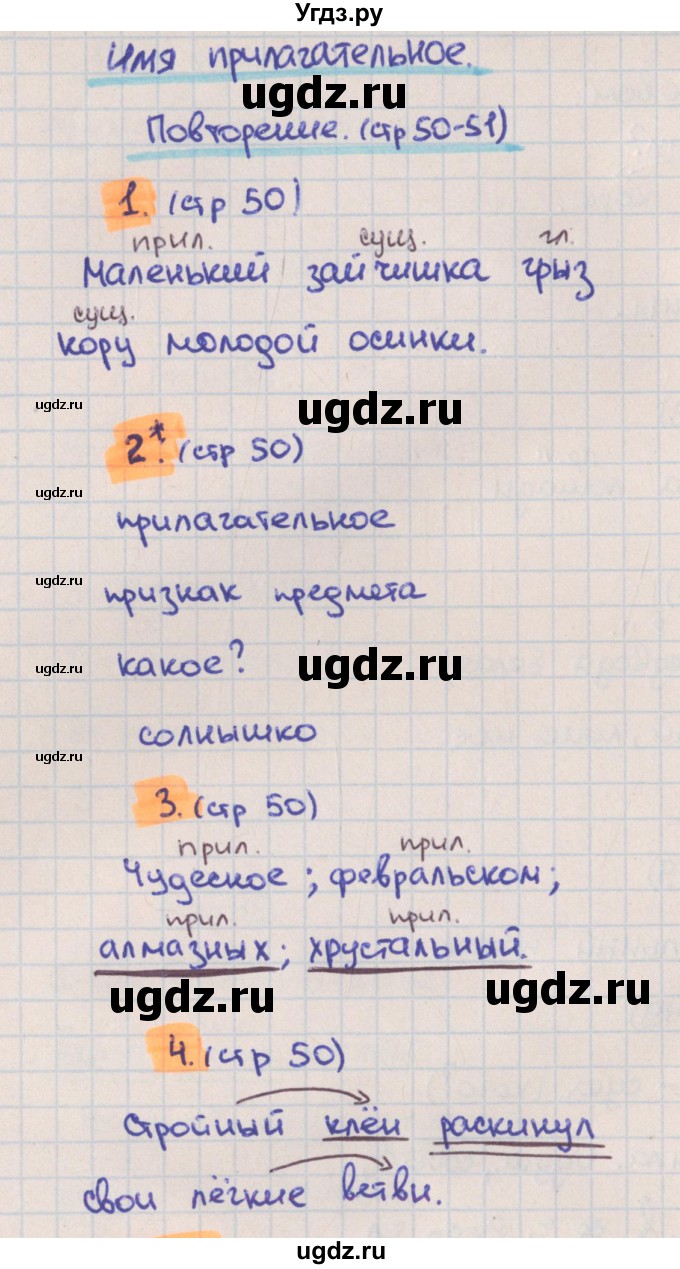 Угдз.ру
Имя прилагательное.
ugdz.ru
Повторение. (стр 50-51)
1. (стр 50)
прил. сущ. гл.
Маленький зайчишка грыз
сущ.
кору молодой осинки.
ugdz.ru
2*. (стр 50)
ugdz.ru
прилагательное
ugdz.ru
признак предмета
какое?
ugdz.ru
ugdz.ru
солнышко
ugdz.ru
3. (стр 50)
прил. прил.
Чудесное; февральском;
прил. прил.
алмазных; хрустальный.
ugdz.ru
ugdz.ru
4. (стр 50)
Стройный клён раскинул
свои лёгкие ветви.
ugdz.ru